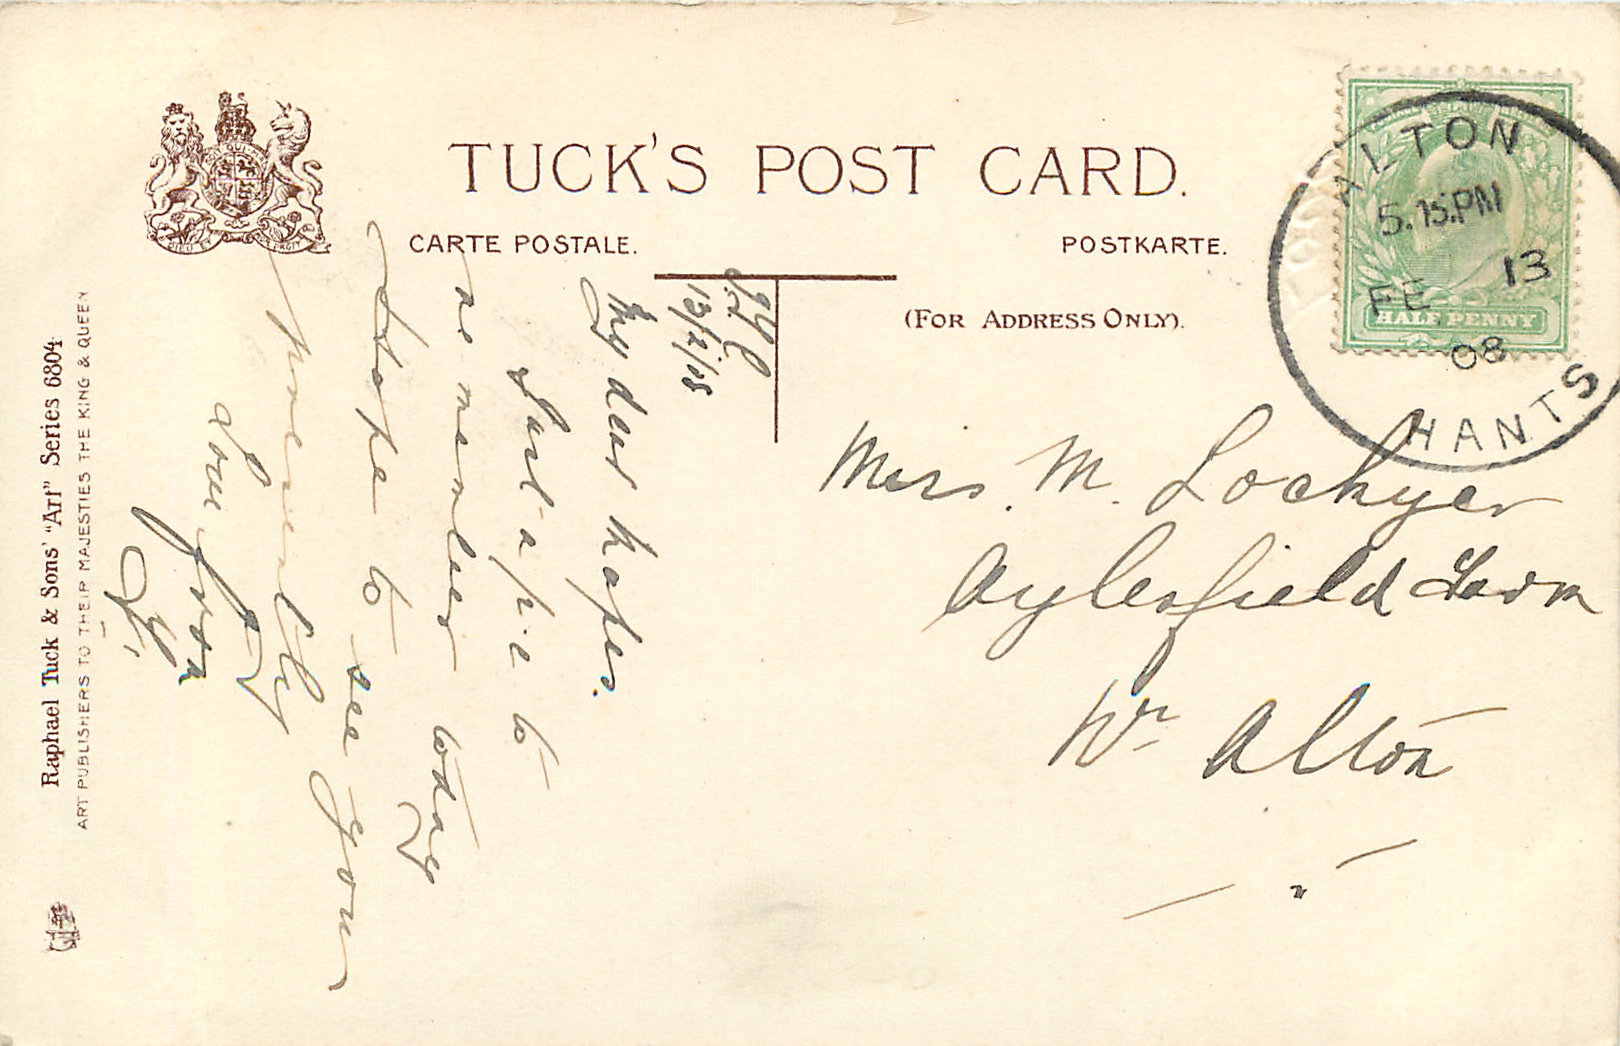 TUCK'S POST CARD.
CARTE POSTALE.
POSTKARTE.
(FOR ADDRESS ONLY).
ALTON
5.15.PM
FE 13
08
HANTS
HALF PENNY
Miss. M. Lockyer
Aylesfield Farm
Nr Alton
13/2/08
My dear
to
today
Hope to see you
presently
Love from
Raphael Tuck & Sons' "Art" Series 6804
ART PUBLISHERS TO THEIR MAJESTIES THE KING & QUEEN